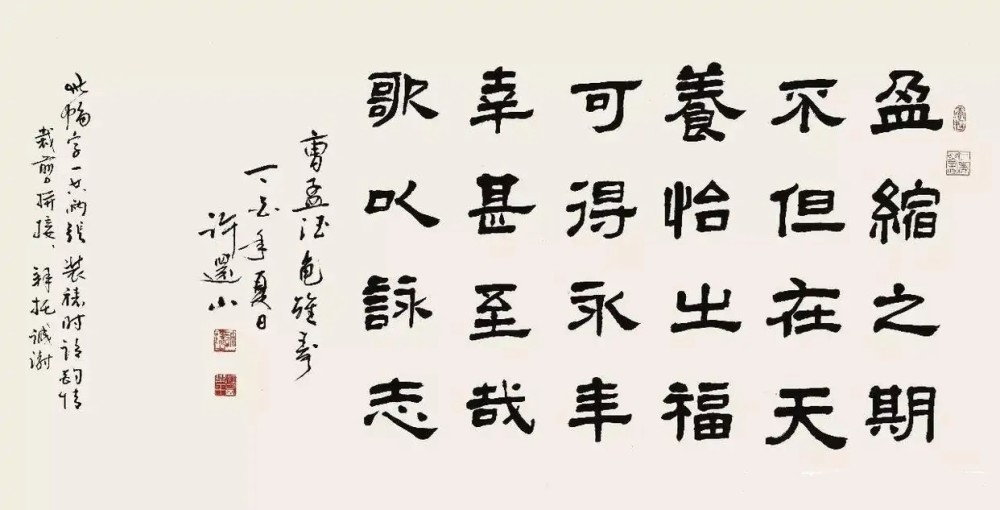 盈縮之期
不但在天
養怡之福
可得永年
幸甚至哉
歌以詠志
曹孟德龜雖壽
丁亥年夏日
許還山
此幅字一共兩張裝裱時請酌情
裁剪拼接、拜托诚谢